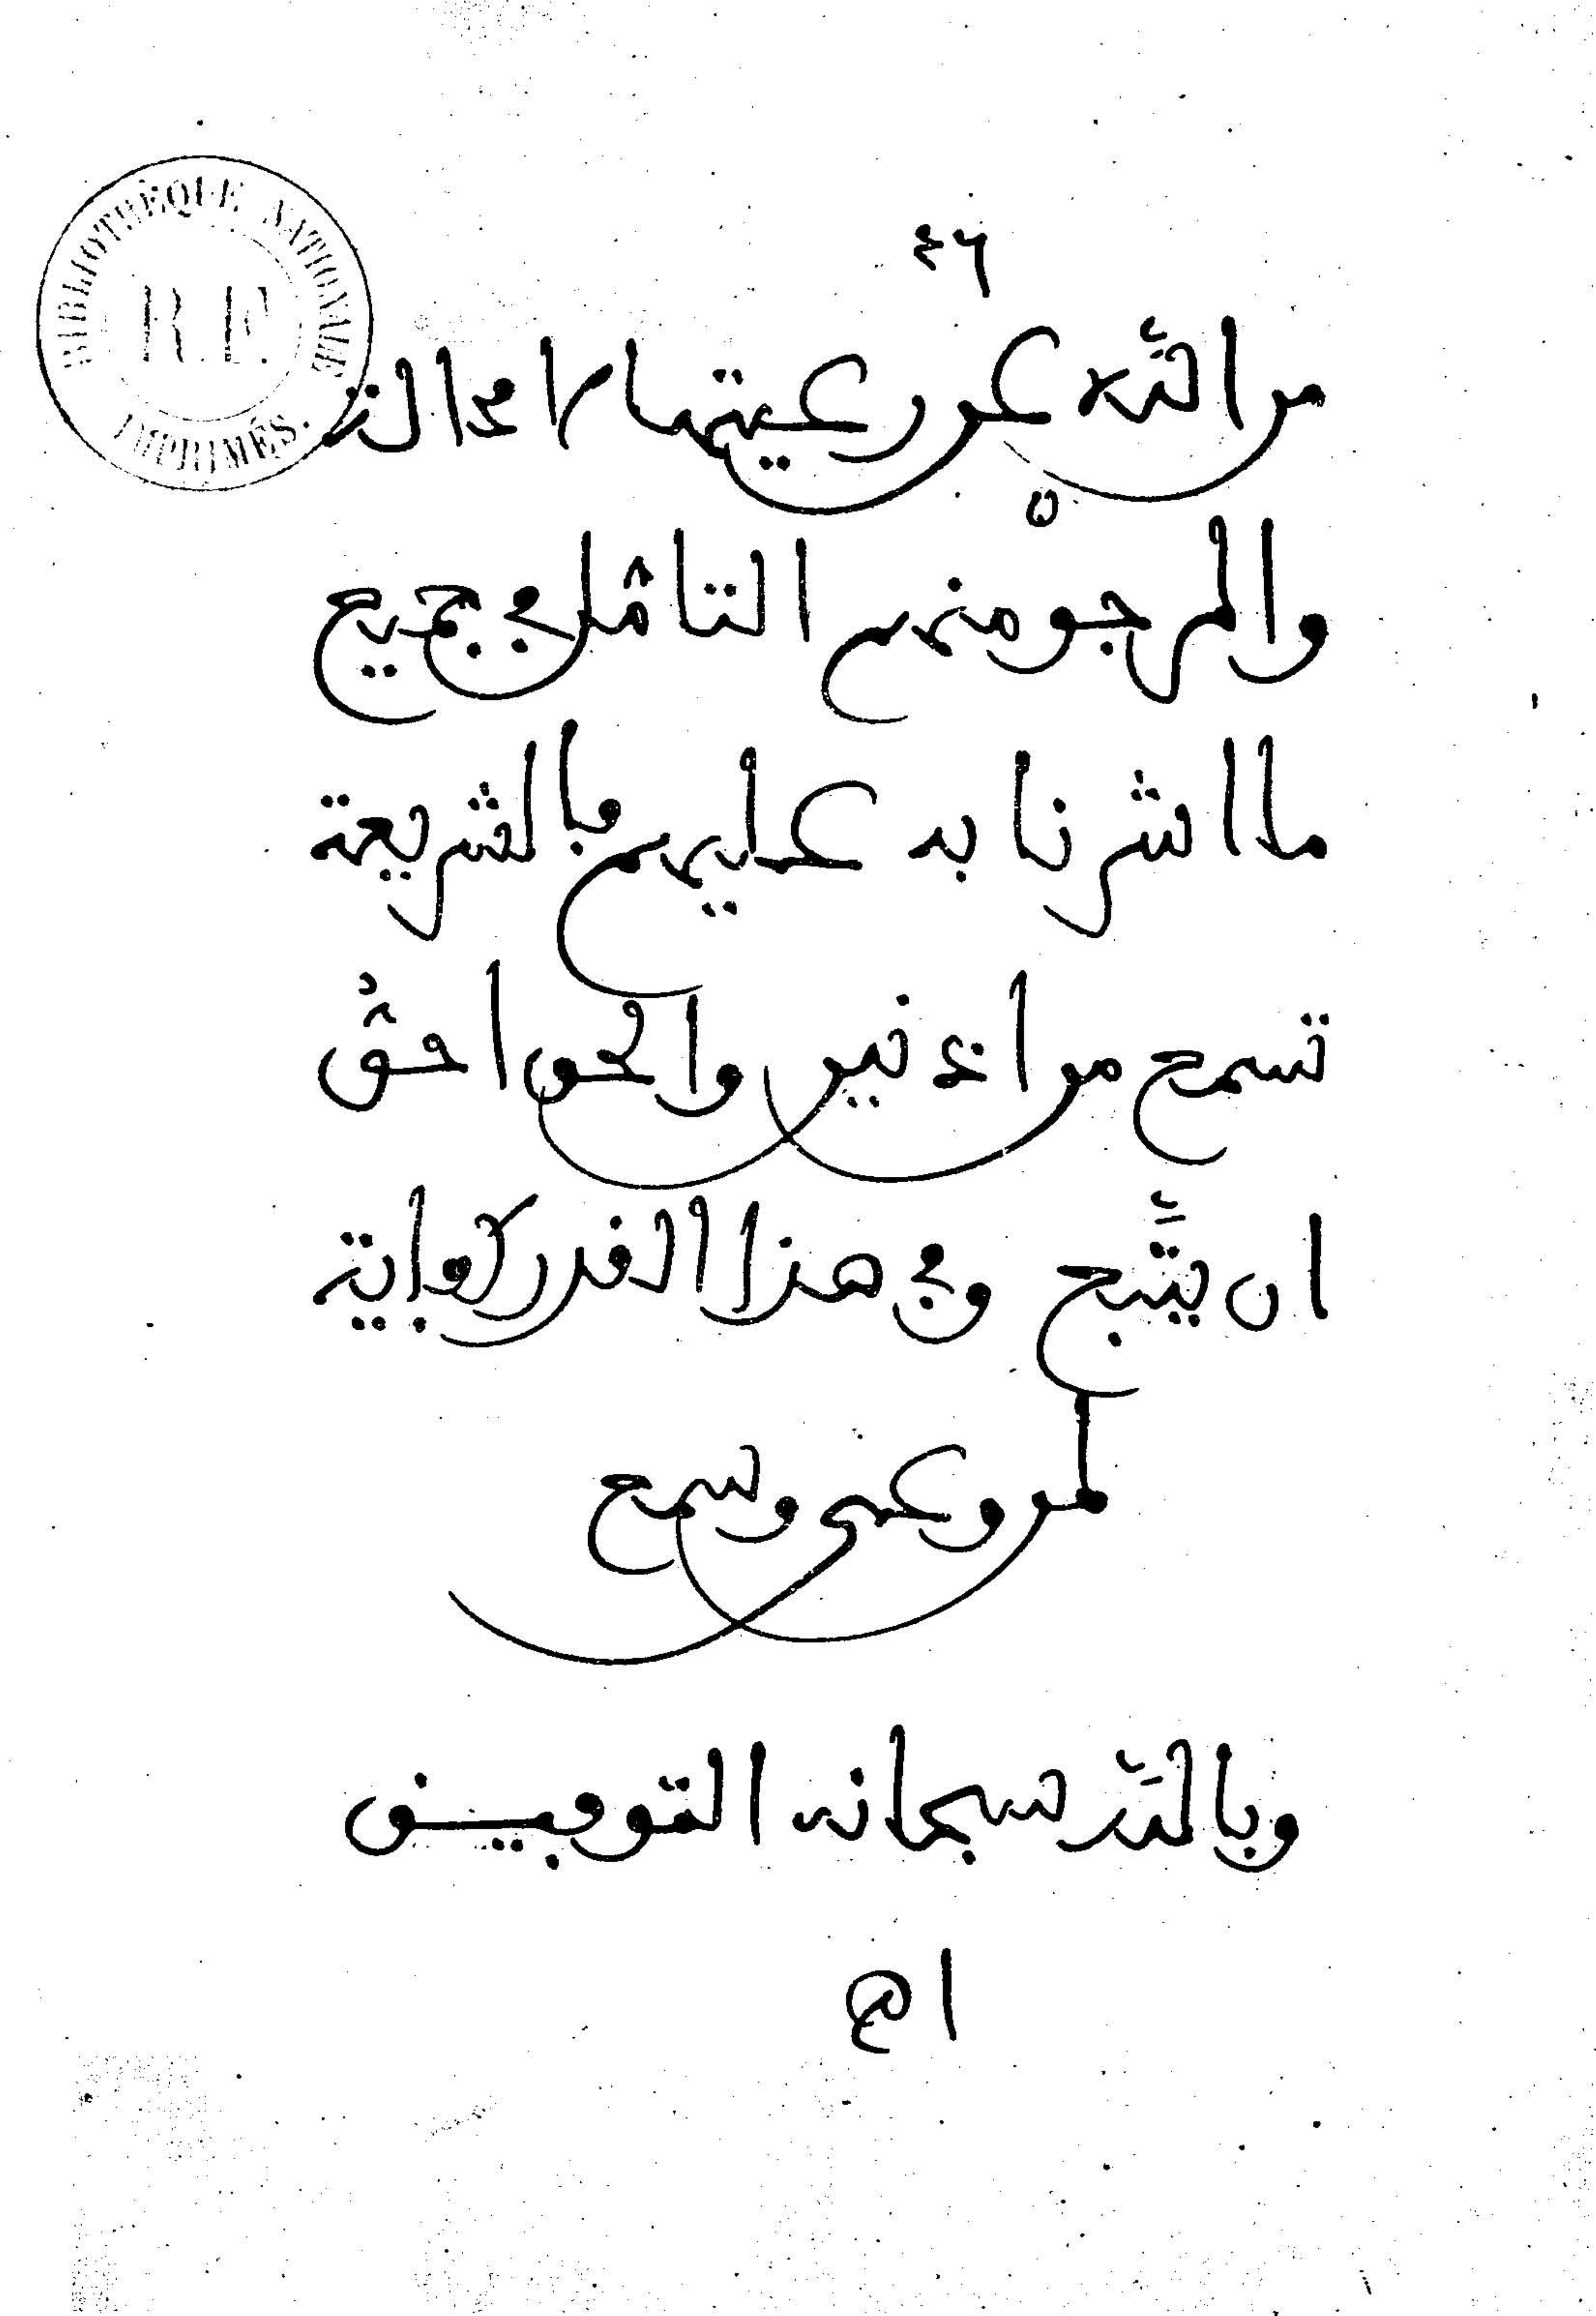 ٤٦
BIBLIOTHÈQUE NATIONALE
R.F.
IMPRIMÉS.
من اللّه عن رعيتها لا محالة
والمرجوْ منهم التامّل في جميع
ما اشرنا به عليهم فالشريعة
تسمع من اذنين والحق احقّ
ان يتّبع وفي هذا القدر كفاية
لمن وعى وسمع
وباللّه سبحانه التوفيق
اه